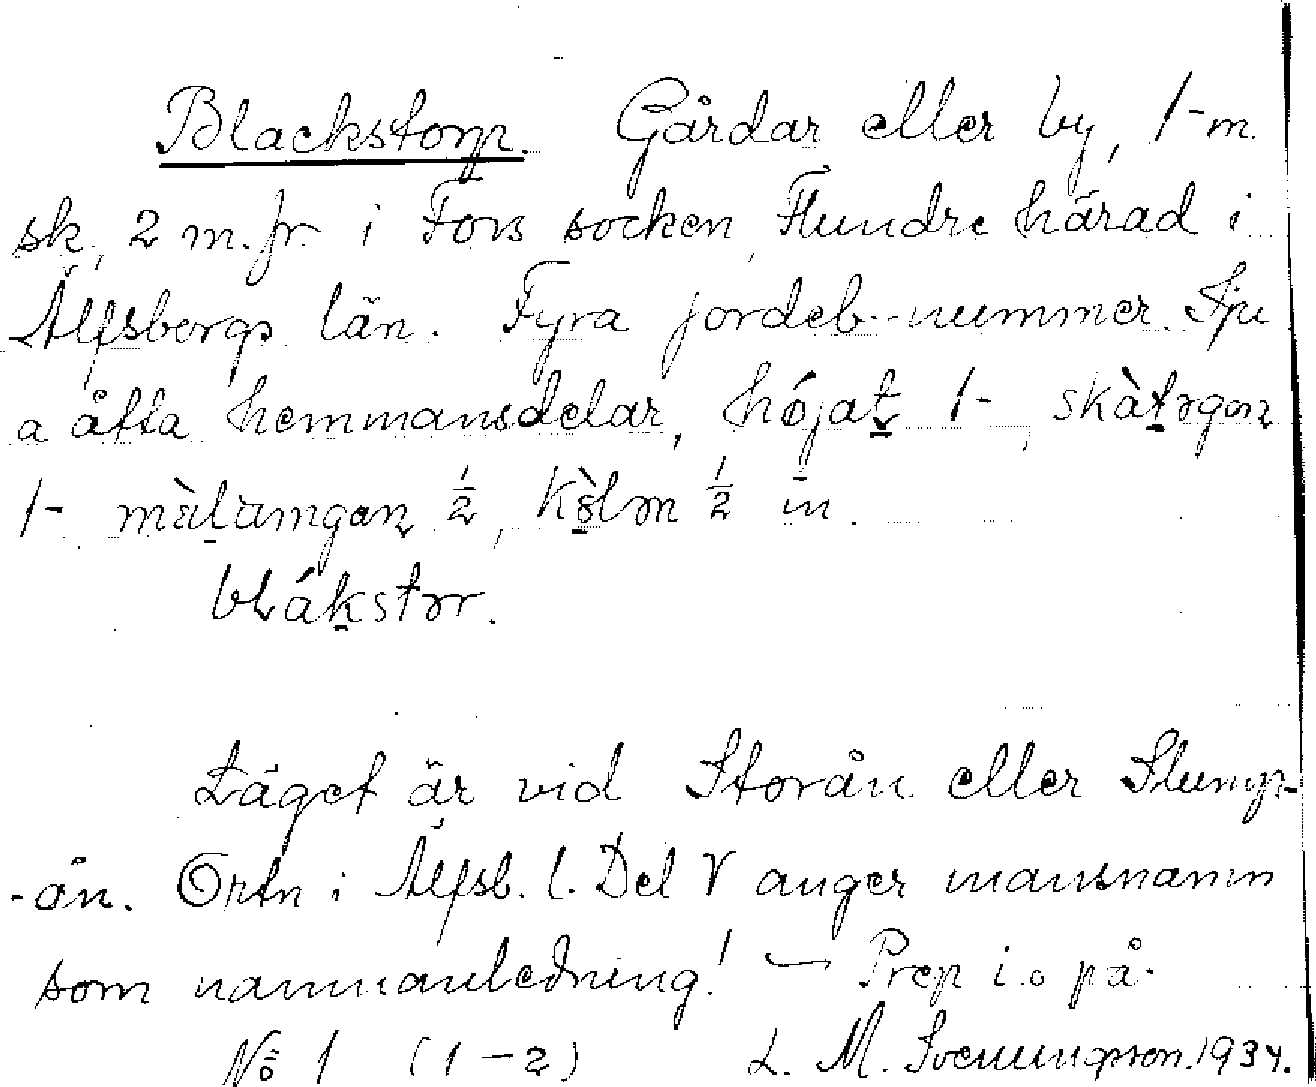 Blackstorp. Gårdar eller by, 1-m.
sk, 2 m. fr. i Fors socken, Flundre härad i
Älfsborgs län. Fyra jordeb.-nummer. Sju
a åtta hemmansdelar, hójat 1-, skàtrgan
1- màlamgan 1/2, Kòlm 1/2 in.
blákstɔr.
Läget är vid Storån eller Slump-
-ån. Ortn i Älfsb. l. Del V anger mansnamn
som namnanledning! — Prep i. o på.
No 1 (1-2) L. M. Svenungsson. 1934.